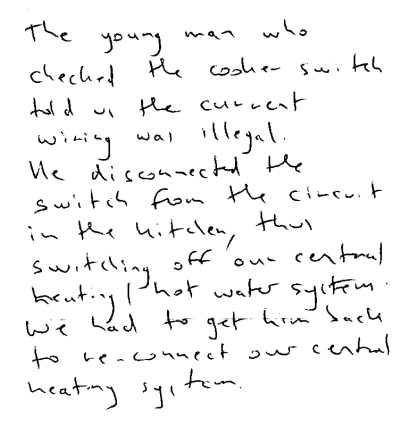 The young man who
checked the cooker switch
told us the current
wiring was illegal.
He disconnected the
switch from the circuit
in the kitchen, thus
switching off our central
heating/hot water system.
We had to get him back
to re-connect our central
heating system.